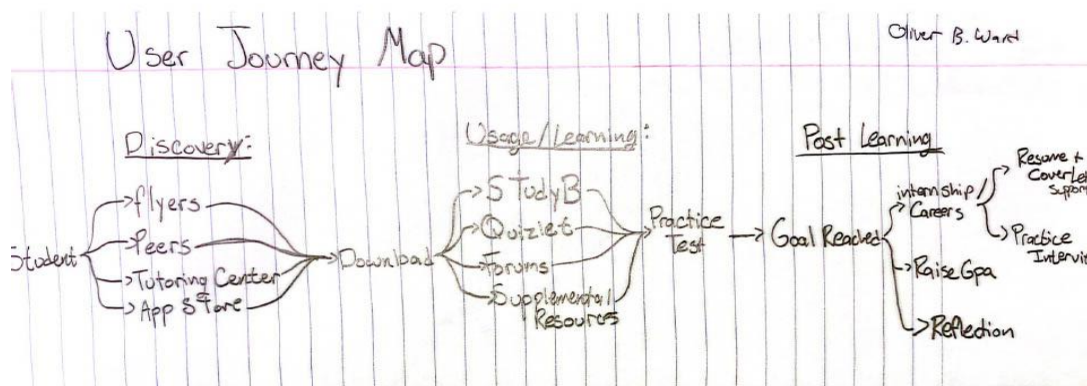 User Journey Map
Oliver B. Ward
Discovery:
Student
flyers
Peers
Tutoring Center
App Store
Download
Usage/Learning:
STudyB
Quizlet
Forums
Supplemental
Resources
Practice
Test
Post Learning
Goal Reached
internship
Careers
Resume +
CoverLet
Support
Practice
Intervi
Raise Gpa
Reflection